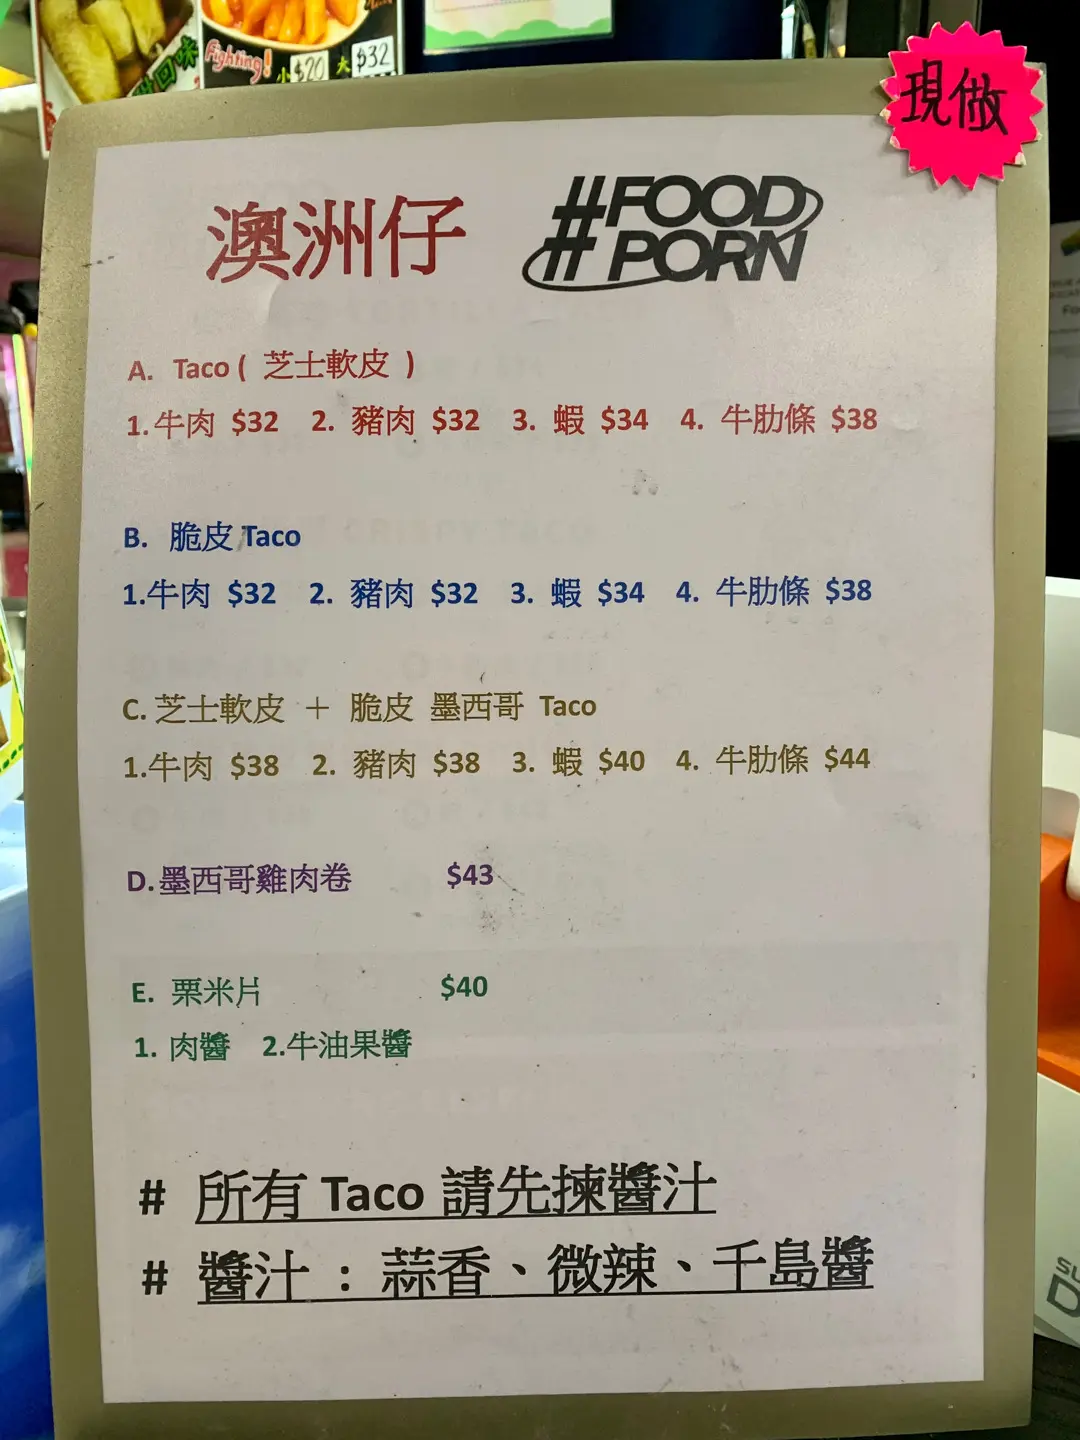 Fighting! 小 $20 大 $32
現做
澳洲仔
#FOOD
#PORN
A. Taco ( 芝士軟皮 )
1.牛肉 $32 2. 豬肉 $32 3. 蝦 $34 4. 牛肋條 $38
B. 脆皮 Taco
1.牛肉 $32 2. 豬肉 $32 3. 蝦 $34 4. 牛肋條 $38
C. 芝士軟皮 + 脆皮 墨西哥 Taco
1.牛肉 $38 2. 豬肉 $38 3. 蝦 $40 4. 牛肋條 $44
D.墨西哥雞肉卷 $43
E. 粟米片 $40
1. 肉醬 2.牛油果醬
# 所有 Taco 請先揀醬汁
# 醬汁 : 蒜香、微辣、千島醬